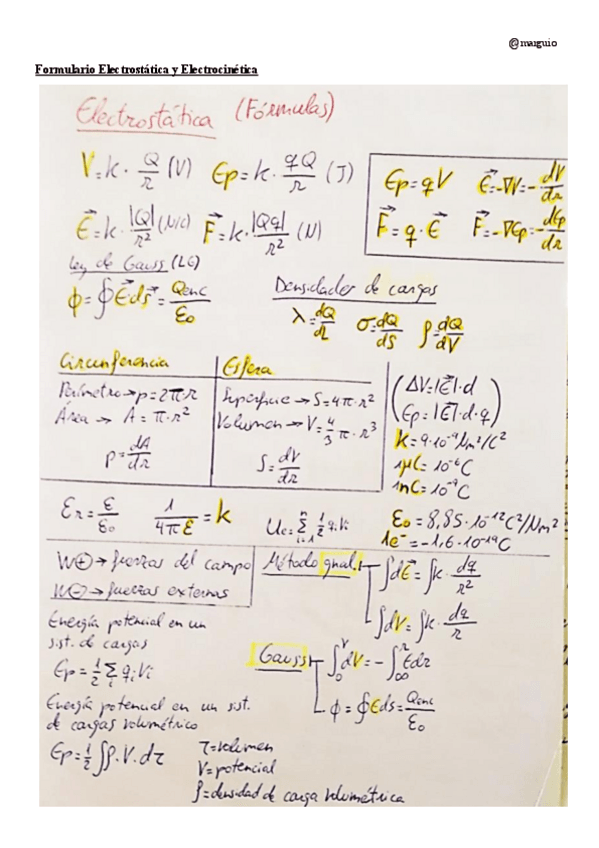 @maiguio
Formulario Electrostática y Electrocinética
Electrostática (Fórmulas)
V = k · Q/r (V)   Ep = k · qQ/r (J)
Ep = qV   E⃗ = -∇V = - dV/dr
E⃗ = k · |Q|/r² (N/C)   F⃗ = k · |Qq|/r² (N)
F⃗ = q · E⃗   F⃗ = -∇Ep = - dEp/dr
Ley de Gauss (LG)
ϕ = ∮ E⃗ ds⃗ = Qenc/ε₀
Densidades de cargas
λ = dQ/dl   σ = dQ/dS   ρ = dQ/dV
Circunferencia
Perímetro → p = 2π·r
Área → A = π·r²
p = dA/dr
Esfera
Superficie → S = 4π·r²
Volumen → V = 4/3 π·r³
S = dV/dr
(ΔV = |E⃗|·d
Ep = |E⃗|·d·q)
k = 9·10⁻⁹ Nm²/C²
1μC = 10⁻⁶ C
1nC = 10⁻⁹ C
ε₀ = 8,85·10⁻¹² C²/Nm²
1e⁻ = -1,6·10⁻¹⁹ C
εr = ε/ε₀   1/4πε = k   Ue = Σ i=1 n 1/2 qi Vi
W⊕ → fuerzas del campo
W⊖ → fuerzas externas
Método gnal.
∫dE⃗ = ∫k · dq/r²
∫dV = ∫k · dq/r
Energía potencial en un
sist. de cargas
Ep = 1/2 Σi qi Vi
Gauss
∫₀ⱽ dV = - ∫∞ʳ E dr
ϕ = ∮ E ds = Qenc/ε₀
Energía potencial en un sist.
de cargas volumétrico
Ep = 1/2 ∫∫ρ · V · dτ
τ = volumen
V = potencial
ρ = densidad de carga volumétrica